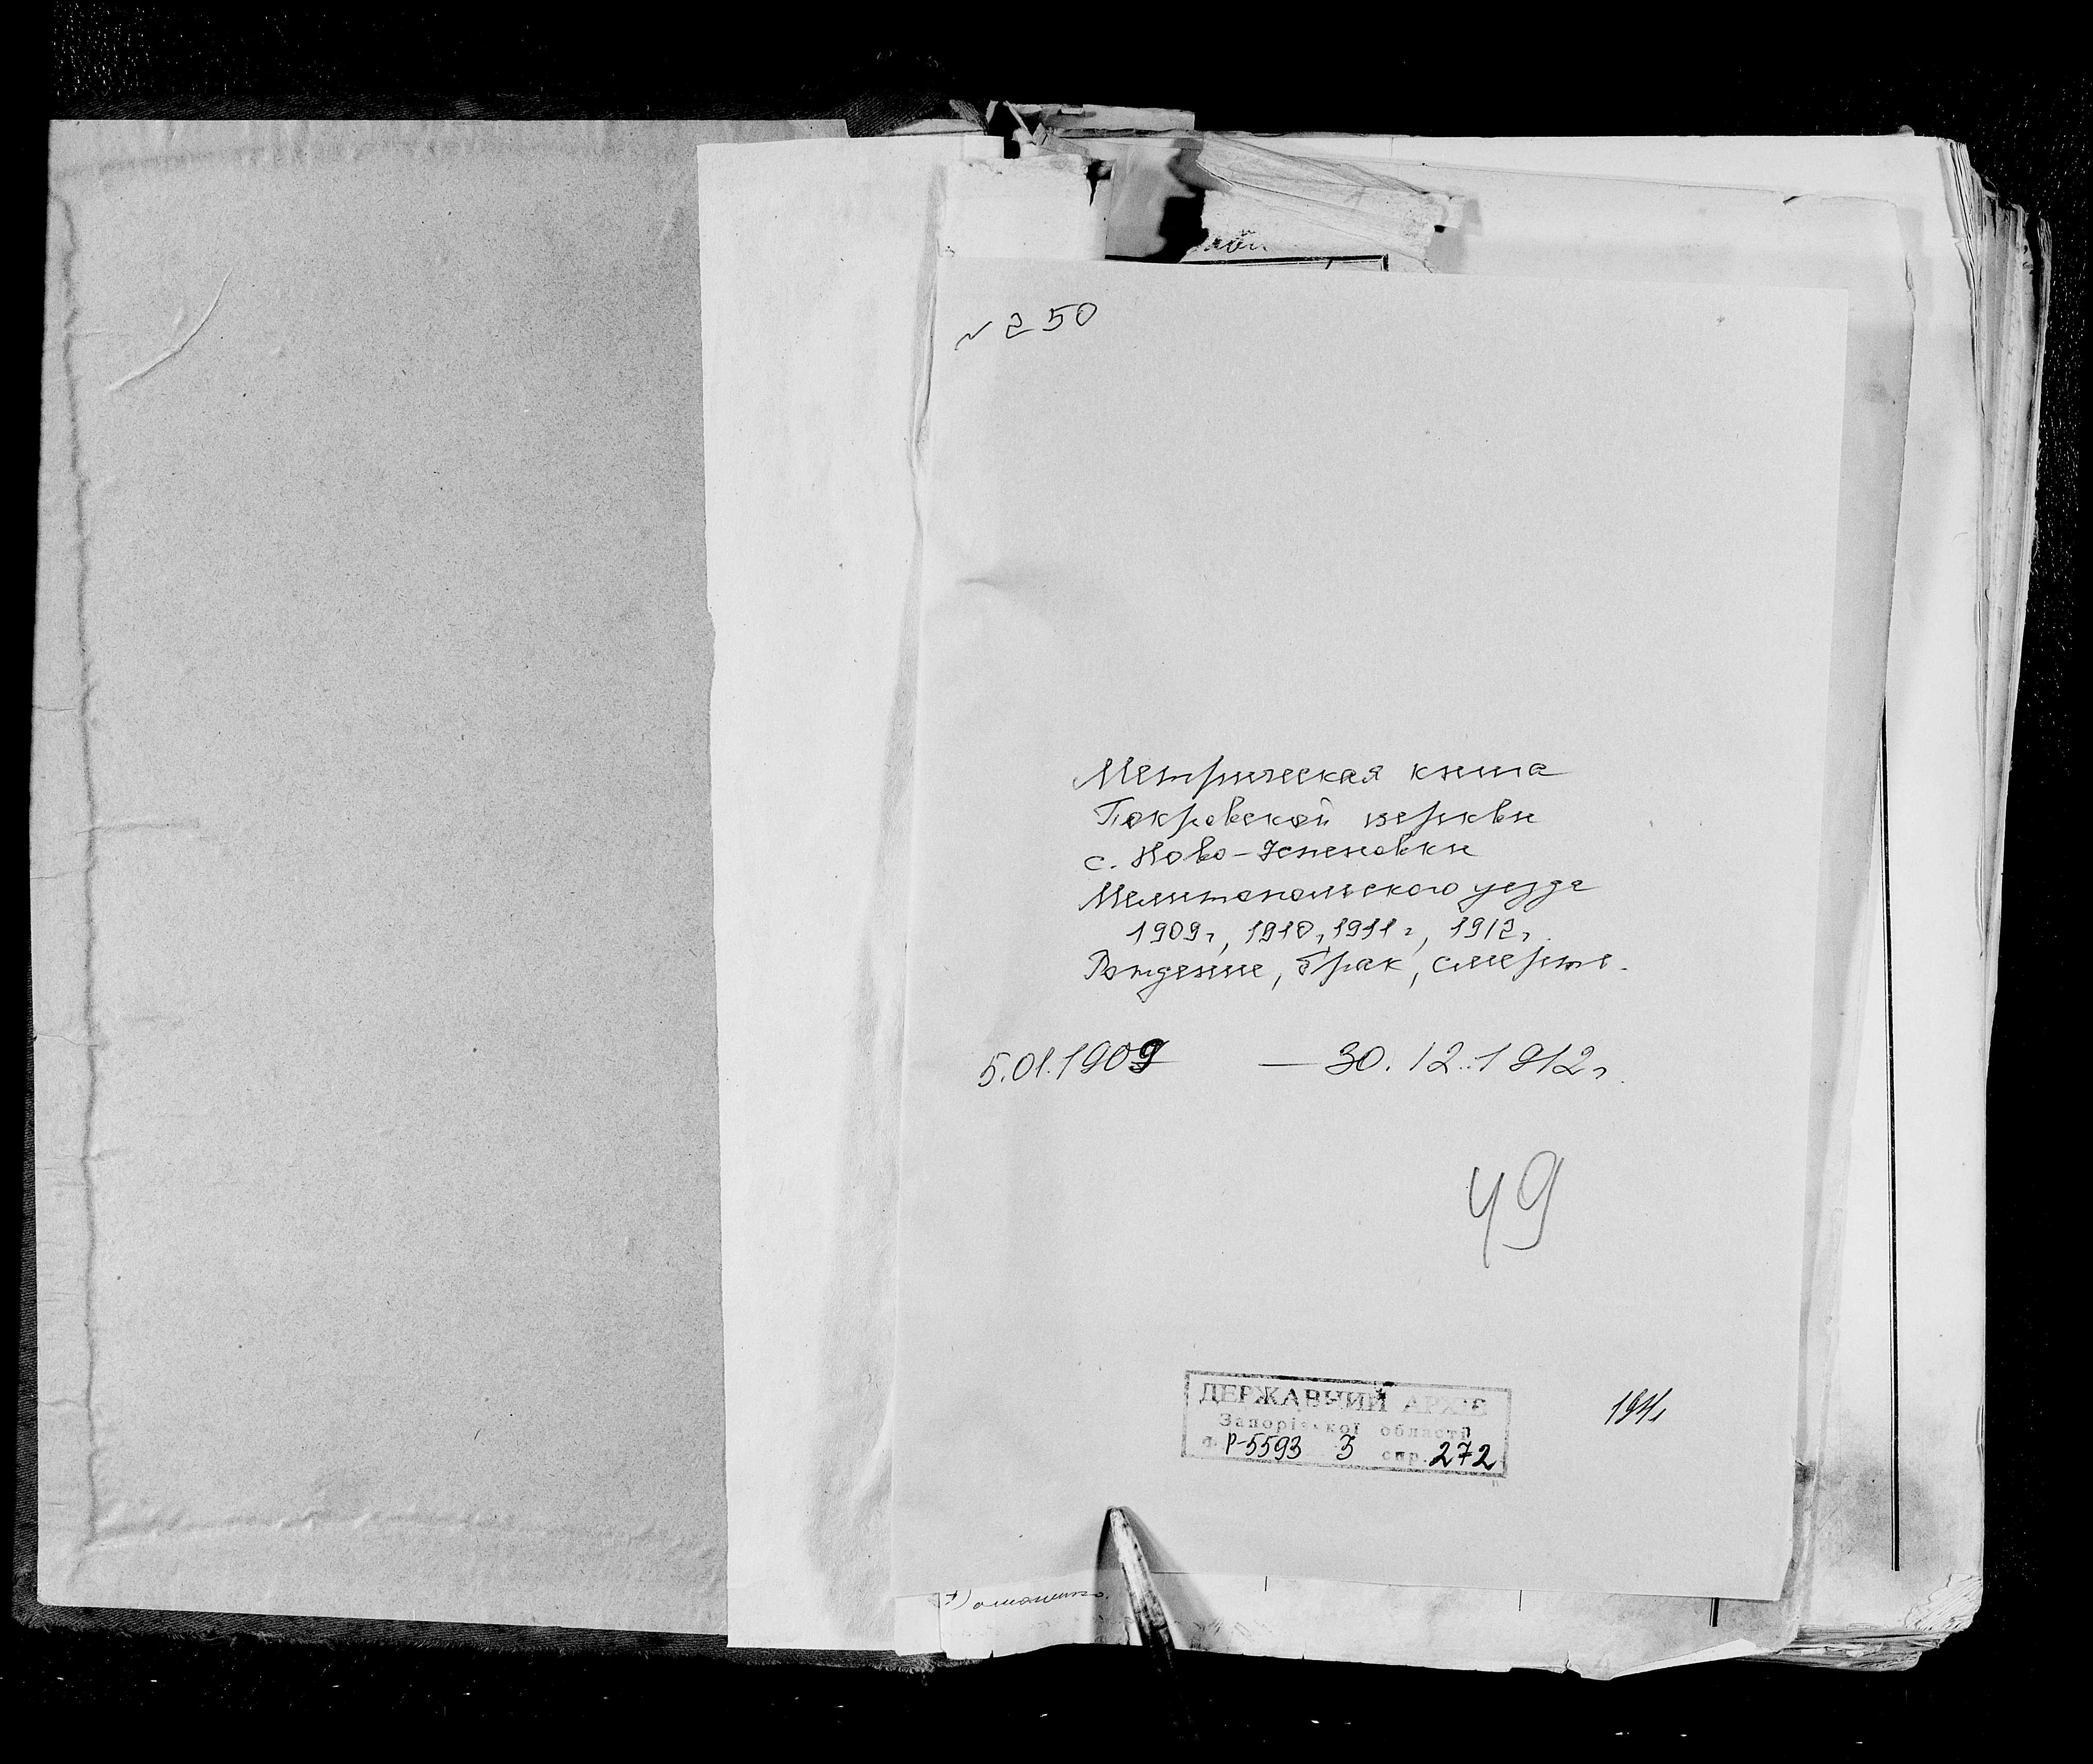 № 250
Метрическая книга
Покровской церкви
с. Ново-Успеновки
Мелитопольского уезда
1909г, 1910, 1911г, 1912г.
Рождение, брак, смерть.
5.01.1909 — 30.12.1912г.
49
ДЕРЖАВНИЙ АРХІВ
Запорізької області
ф. Р-5593 3 спр. 272